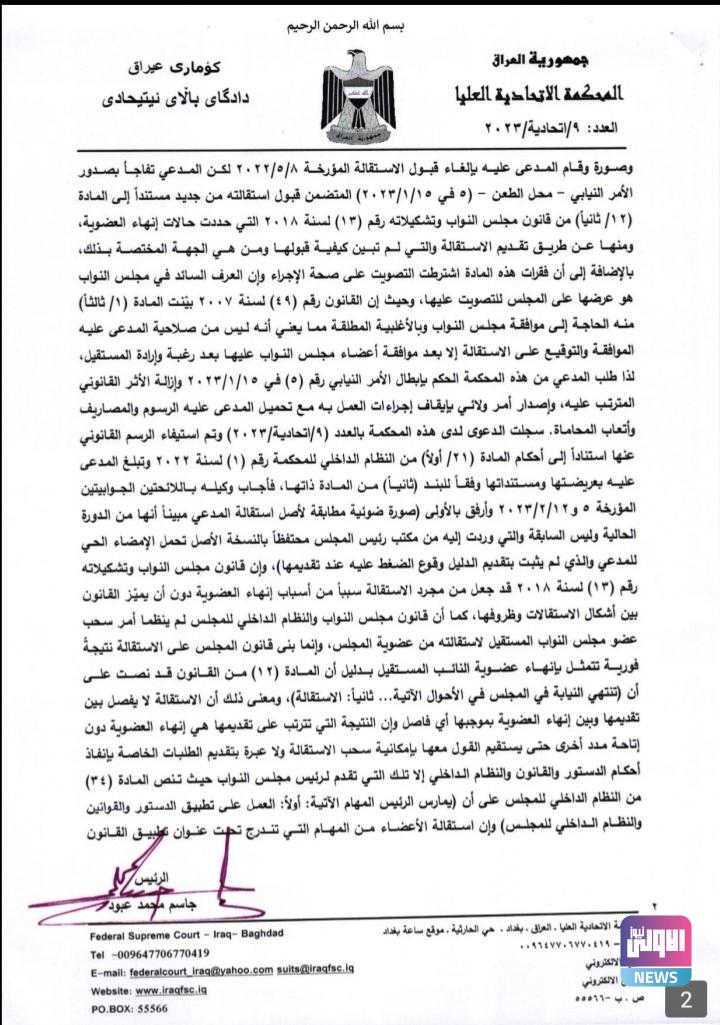 بسم الله الرحمن الرحيم
جمهورية العراق
المحكمة الاتحادية العليا
العدد: ٩/اتحادية/٢٠٢٣
كۆماری عیراق
دادگای باڵای ئیتیحادی
وصورة وقام المدعى عليه بإلغاء قبول الاستقالة المؤرخة ٢٠٢٢/٥/٨ لكن المدعي تفاجأ بصدور
الأمر النيابي – محل الطعن – (٥ في ٢٠٢٣/١/١٥) المتضمن قبول استقالته من جديد مستنداً إلى المادة
(١٢/ ثانياً) من قانون مجلس النواب وتشكيلاته رقم (١٣) لسنة ٢٠١٨ التي حددت حالات إنهاء العضوية،
ومنها عن طريق تقديم الاستقالة والتي لم تبين كيفية قبولها ومن هي الجهة المختصة بذلك،
بالإضافة إلى أن فقرات هذه المادة اشترطت التصويت على صحة الإجراء وإن العرف السائد في مجلس النواب
هو عرضها على المجلس للتصويت عليها، وحيث إن القانون رقم (٤٩) لسنة ٢٠٠٧ بيّنت المادة (١/ ثالثاً)
منه الحاجة إلى موافقة مجلس النواب وبالأغلبية المطلقة مما يعني أنه ليس من صلاحية المدعى عليه
الموافقة والتوقيع على الاستقالة إلا بعد موافقة أعضاء مجلس النواب عليها بعد رغبة وإرادة المستقيل،
لذا طلب المدعي من هذه المحكمة الحكم بإبطال الأمر النيابي رقم (٥) في ٢٠٢٣/١/١٥ وإزالة الأثر القانوني
المترتب عليه، وإصدار أمر ولائي بإيقاف إجراءات العمل به مع تحميل المدعى عليه الرسوم والمصاريف
وأتعاب المحاماة. سجلت الدعوى لدى هذه المحكمة بالعدد (٩/اتحادية/٢٠٢٣) وتم استيفاء الرسم القانوني
عنها استناداً إلى أحكام المادة (٢١/ أولاً) من النظام الداخلي للمحكمة رقم (١) لسنة ٢٠٢٢ وتبلغ المدعى
عليه بعريضتها ومستنداتها وفقاً للبند (ثانياً) من المادة ذاتها، فأجاب وكيله باللائحتين الجوابيتين
المؤرخة ٥ و٢٠٢٣/٢/١٢ وأرفق بالأولى (صورة ضوئية مطابقة لأصل استقالة المدعي مبيناً أنها من الدورة
الحالية وليس السابقة والتي وردت إليه من مكتب رئيس المجلس محتفظاً بالنسخة الأصل تحمل الإمضاء الحي
للمدعي والذي لم يثبت بتقديم الدليل وقوع الضغط عليه عند تقديمها)، وإن قانون مجلس النواب وتشكيلاته
رقم (١٣) لسنة ٢٠١٨ قد جعل من مجرد الاستقالة سبباً من أسباب إنهاء العضوية دون أن يميّز القانون
بين أشكال الاستقالات وظروفها، كما أن قانون مجلس النواب والنظام الداخلي للمجلس لم ينظما أمر سحب
عضو مجلس النواب المستقيل لاستقالته من عضوية المجلس، وإنما بنى قانون المجلس على الاستقالة نتيجةً
فورية تتمثل بإنهاء عضوية النائب المستقيل بدليل أن المادة (١٢) من القانون قد نصت على
أن (تنتهي النيابة في المجلس في الأحوال الآتية... ثانياً: الاستقالة)، ومعنى ذلك أن الاستقالة لا يفصل بين
تقديمها وبين إنهاء العضوية بموجبها أي فاصل وإن النتيجة التي تترتب على تقديمها هي إنهاء العضوية دون
إتاحة مدد أخرى حتى يستقيم القول معها بإمكانية سحب الاستقالة ولا عبرة بتقديم الطلبات الخاصة بإنفاذ
أحكام الدستور والقانون والنظام الداخلي إلا تلك التي تقدم لرئيس مجلس النواب حيث تنص المادة (٣٤)
من النظام الداخلي للمجلس على أن (يمارس الرئيس المهام الآتية: أولاً: العمل على تطبيق الدستور والقوانين
والنظام الداخلي للمجلس) وإن استقالة الأعضاء من المهام التي تندرج تحت عنوان تطبيق القانون
الرئيس
جاسم محمد عبود
٢
Federal Supreme Court – Iraq– Baghdad
Tel –009647706770419
E–mail: federalcourt_iraq@yahoo.com suits@iraqfsc.iq
Website: www.iraqfsc.iq
PO.BOX: 55566
الاتحادية العليا . العراق . بغداد . حي الحارثية . موقع ساعة بغداد
٠٠٩٦٤٧٧٠٦٧٧٠٤١٩
الالكتروني
الالكتروني
ص . ب – ٥٥٥٦٦
الاولى نيوز
NEWS
2